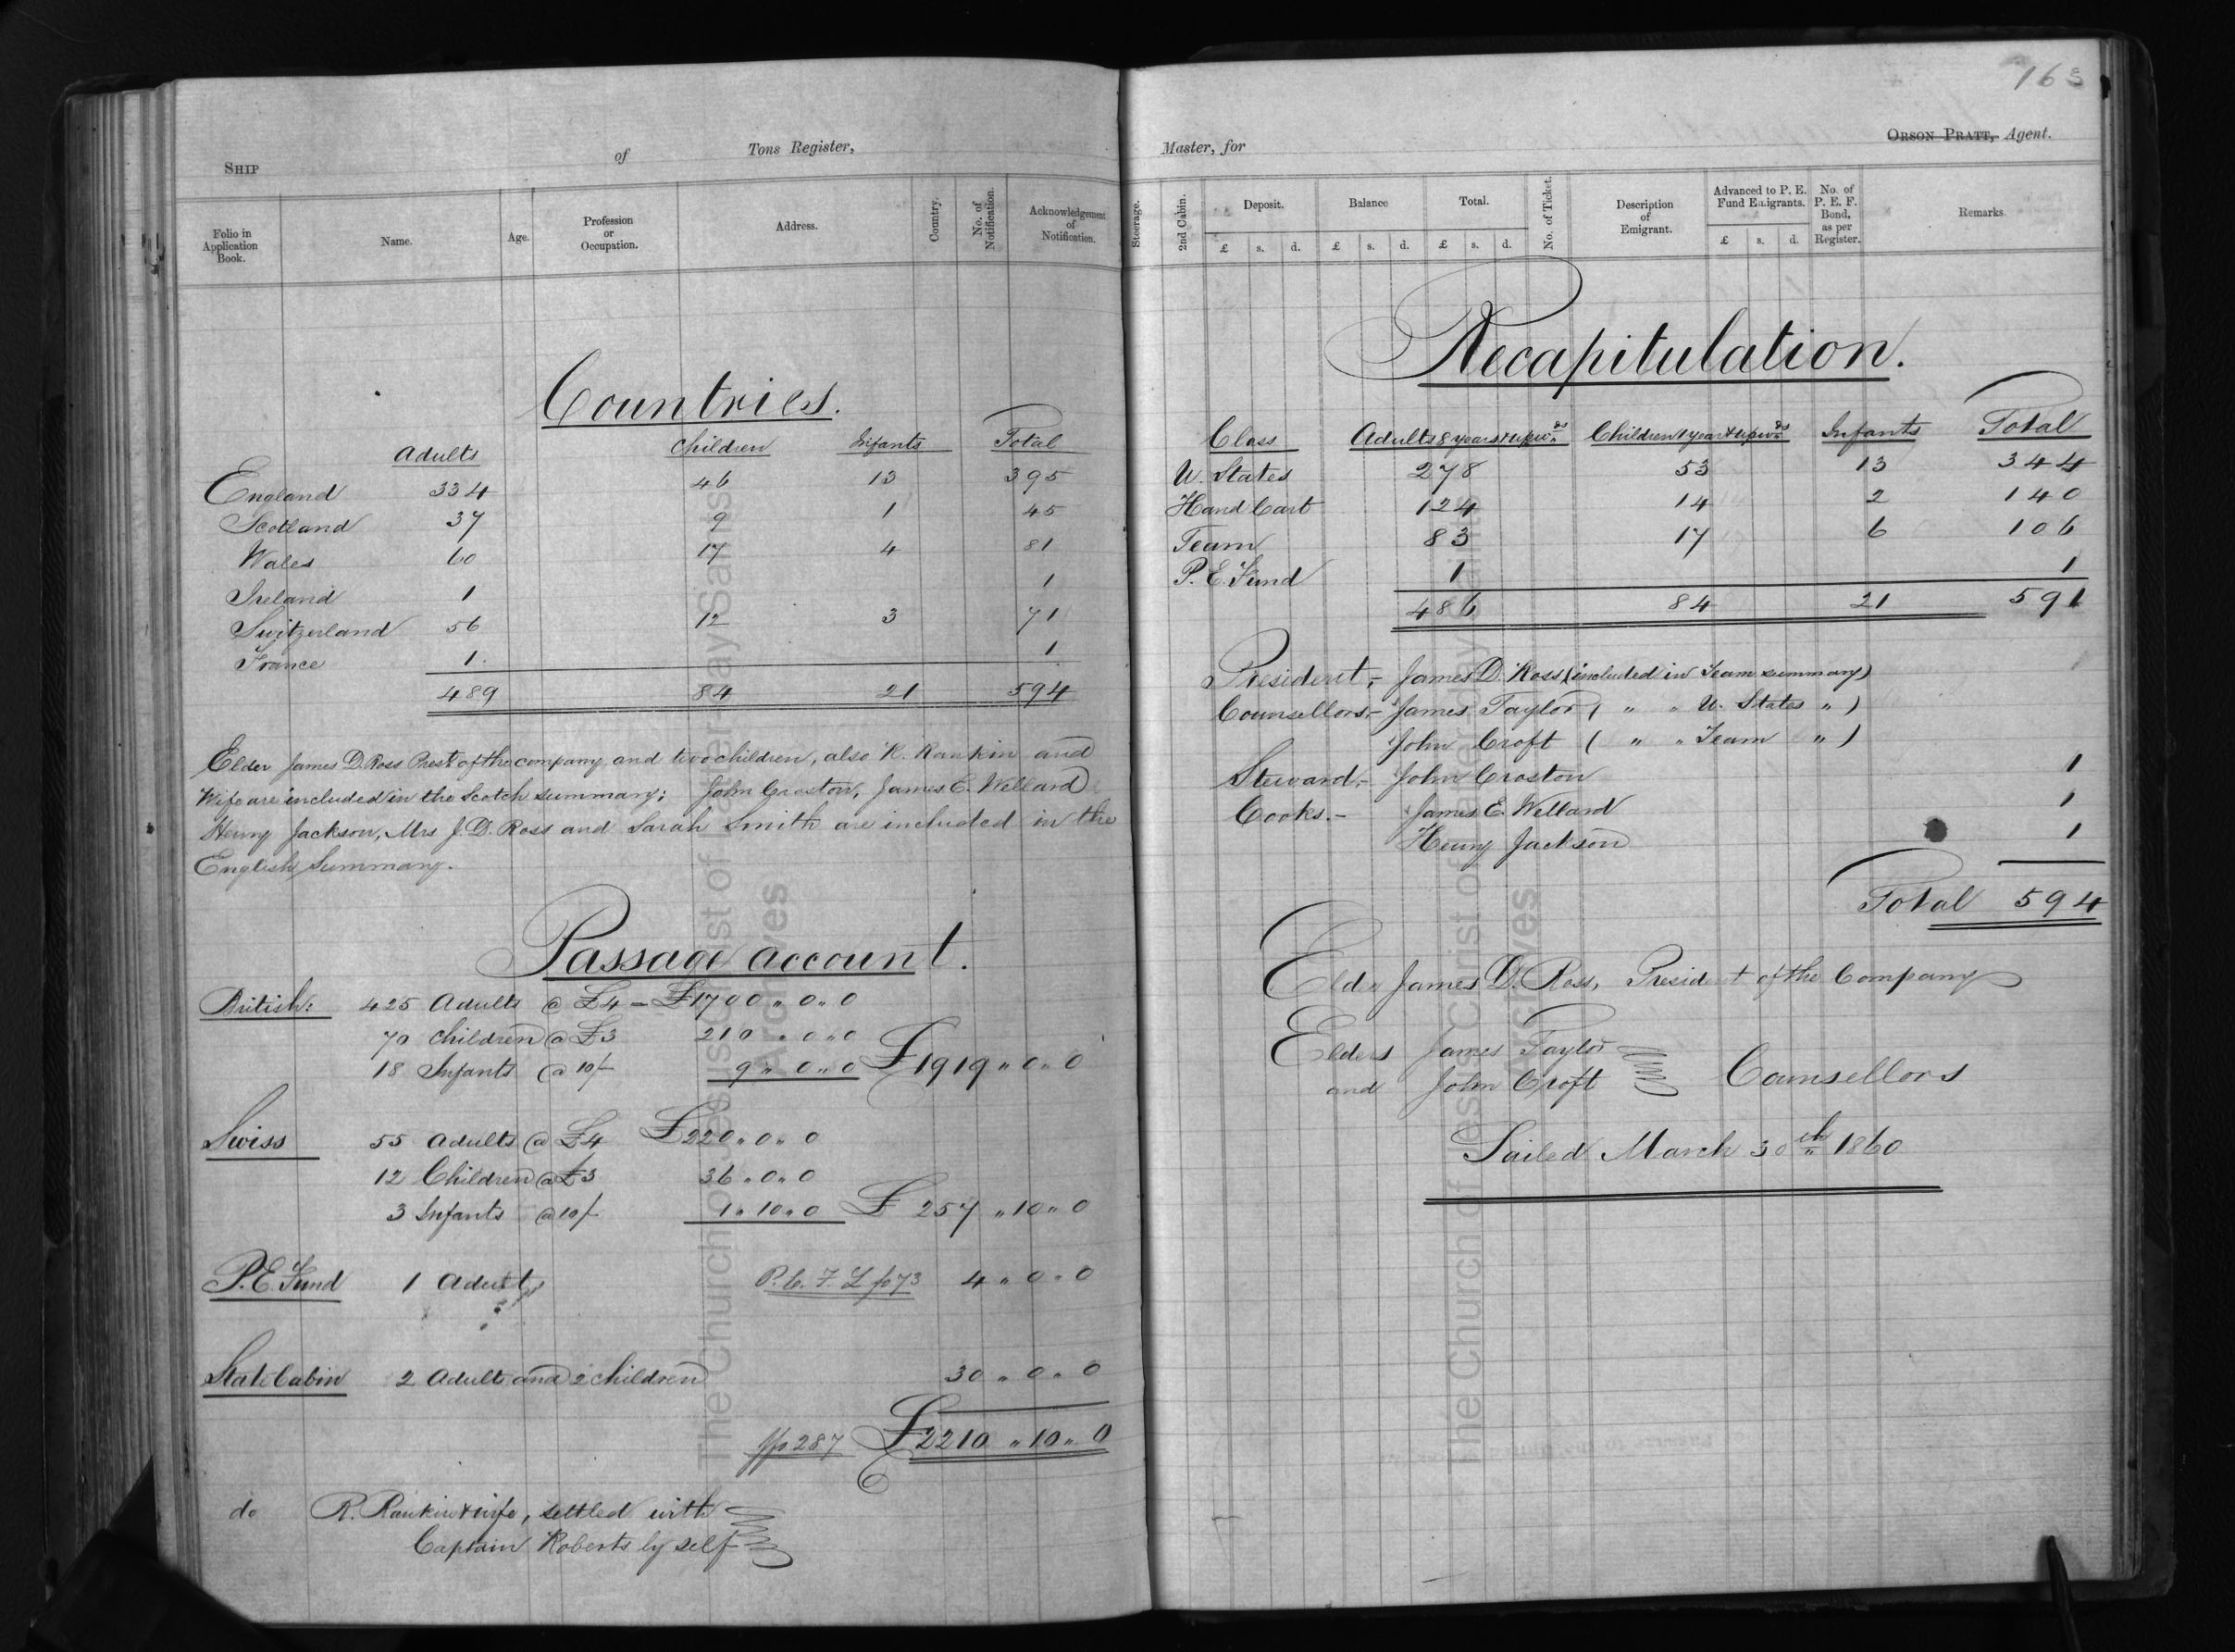 163
SHIP of Tons Register,
Folio in Application Book. Name. Age. Profession or Occupation. Address. Country. No. of Notification. Acknowledgement of Notification.
Countries.
Adults Children Infants Total
England 334 46 13 395
Scotland 37 9 1 45
Wales 60 17 4 81
Ireland 1 1
Switzerland 56 12 3 71
France 1. 1
489 84 21 594
Elder James D. Ross Prest of the company and two children, also R. Rankin and
Wife are included in the Scotch summary; John Croston, James E. Wellard
Henry Jackson, Mrs J. D. Ross and Sarah Smith are included in the
English Summary.
Passage account.
British: 425 Adults @ £4 - £1700 " 0 " 0
70 children @ £3 210 " 0 " 0
18 Infants @ 10/- 9 " 0 " 0 £1919 " 0 " 0
Swiss 55 Adults @ £4 £220 " 0 " 0
12 Children @ £3 36 " 0 " 0
3 Infants @ 10/- 1 " 10 " 0 £257 " 10 " 0
P. E. Fund 1 Adult 4 " 0 " 0
State Cabin 2 Adults and 2 children 30 " 0 " 0
287 £2210 " 10 " 0
do R. Rankin & wife, settled with
Captain Roberts by self
Master, for ORSON PRATT, Agent.
Steerage. 2nd Cabin. Deposit. Balance Total. No. of Ticket. Description of Emigrant. Advanced to P. E. Fund Emigrants. No. of P. E. F. Bond, as per Register. Remarks.
£ s. d. £ s. d. £ s. d. £ s. d.
Recapitulation.
Class Adults 8 years & upwds Children 1 year & upwds Infants Total
U. States 278 53 13 344
Hand Cart 124 14 2 140
Team 83 17 6 106
P. E. Fund 1 1
486 84 21 591
President,- James D. Ross (included in Team summary)
Counsellors,- James Taylor ( " " U. States " )
John Croft ( " " Team " )
Steward,- John Croston 1
Cooks.- James E. Wellard 1
Henry Jackson 1
Total 594
Elder James D. Ross, President of the Company
Elders James Taylor
and John Croft Counsellors
Sailed March 30th 1860
The Church of Jesus Christ of Latter-day Saints
Archives
The Church of Jesus Christ of Latter-day Saints
Archives